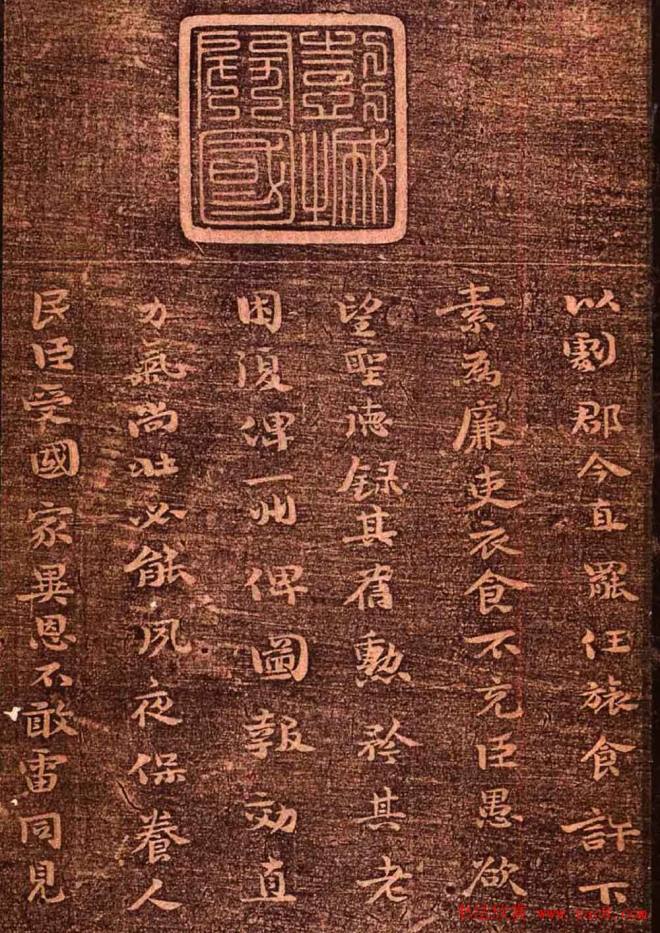 彭城
開國
以劇郡今直罷任旅食許下
素為廉吏衣食不充臣愚欲
望聖德錄其舊勳矜其老
困復俾一州俾圖報効直
力氣尚壯必能夙夜保養人
民臣受國家異恩不敢雷同見
书法欣赏 www.yac8.com